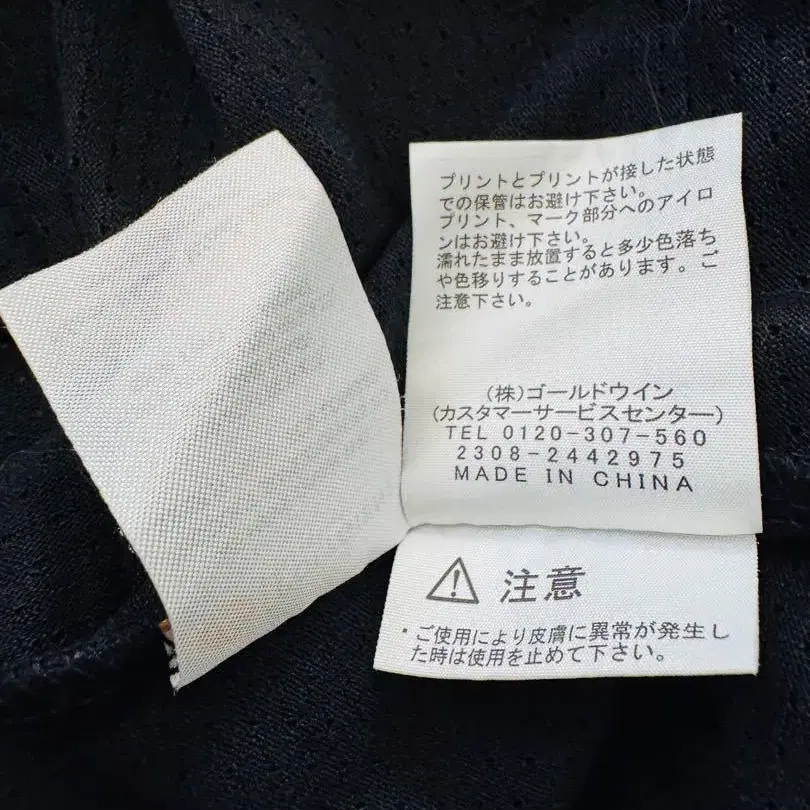 プリントとプリントが接した状態
での保管はお避け下さい。
プリント、マーク部分へのアイロ
ンはお避け下さい。
濡れたまま放置すると多少色落ち
や色移りすることがあります。ご
注意下さい。
(株)ゴールドウイン
(カスタマーサービスセンター)
TEL 0120-307-560
2308-2442975
MADE IN CHINA
注意
・ご使用により皮膚に異常が発生し
た時は使用を止めて下さい。